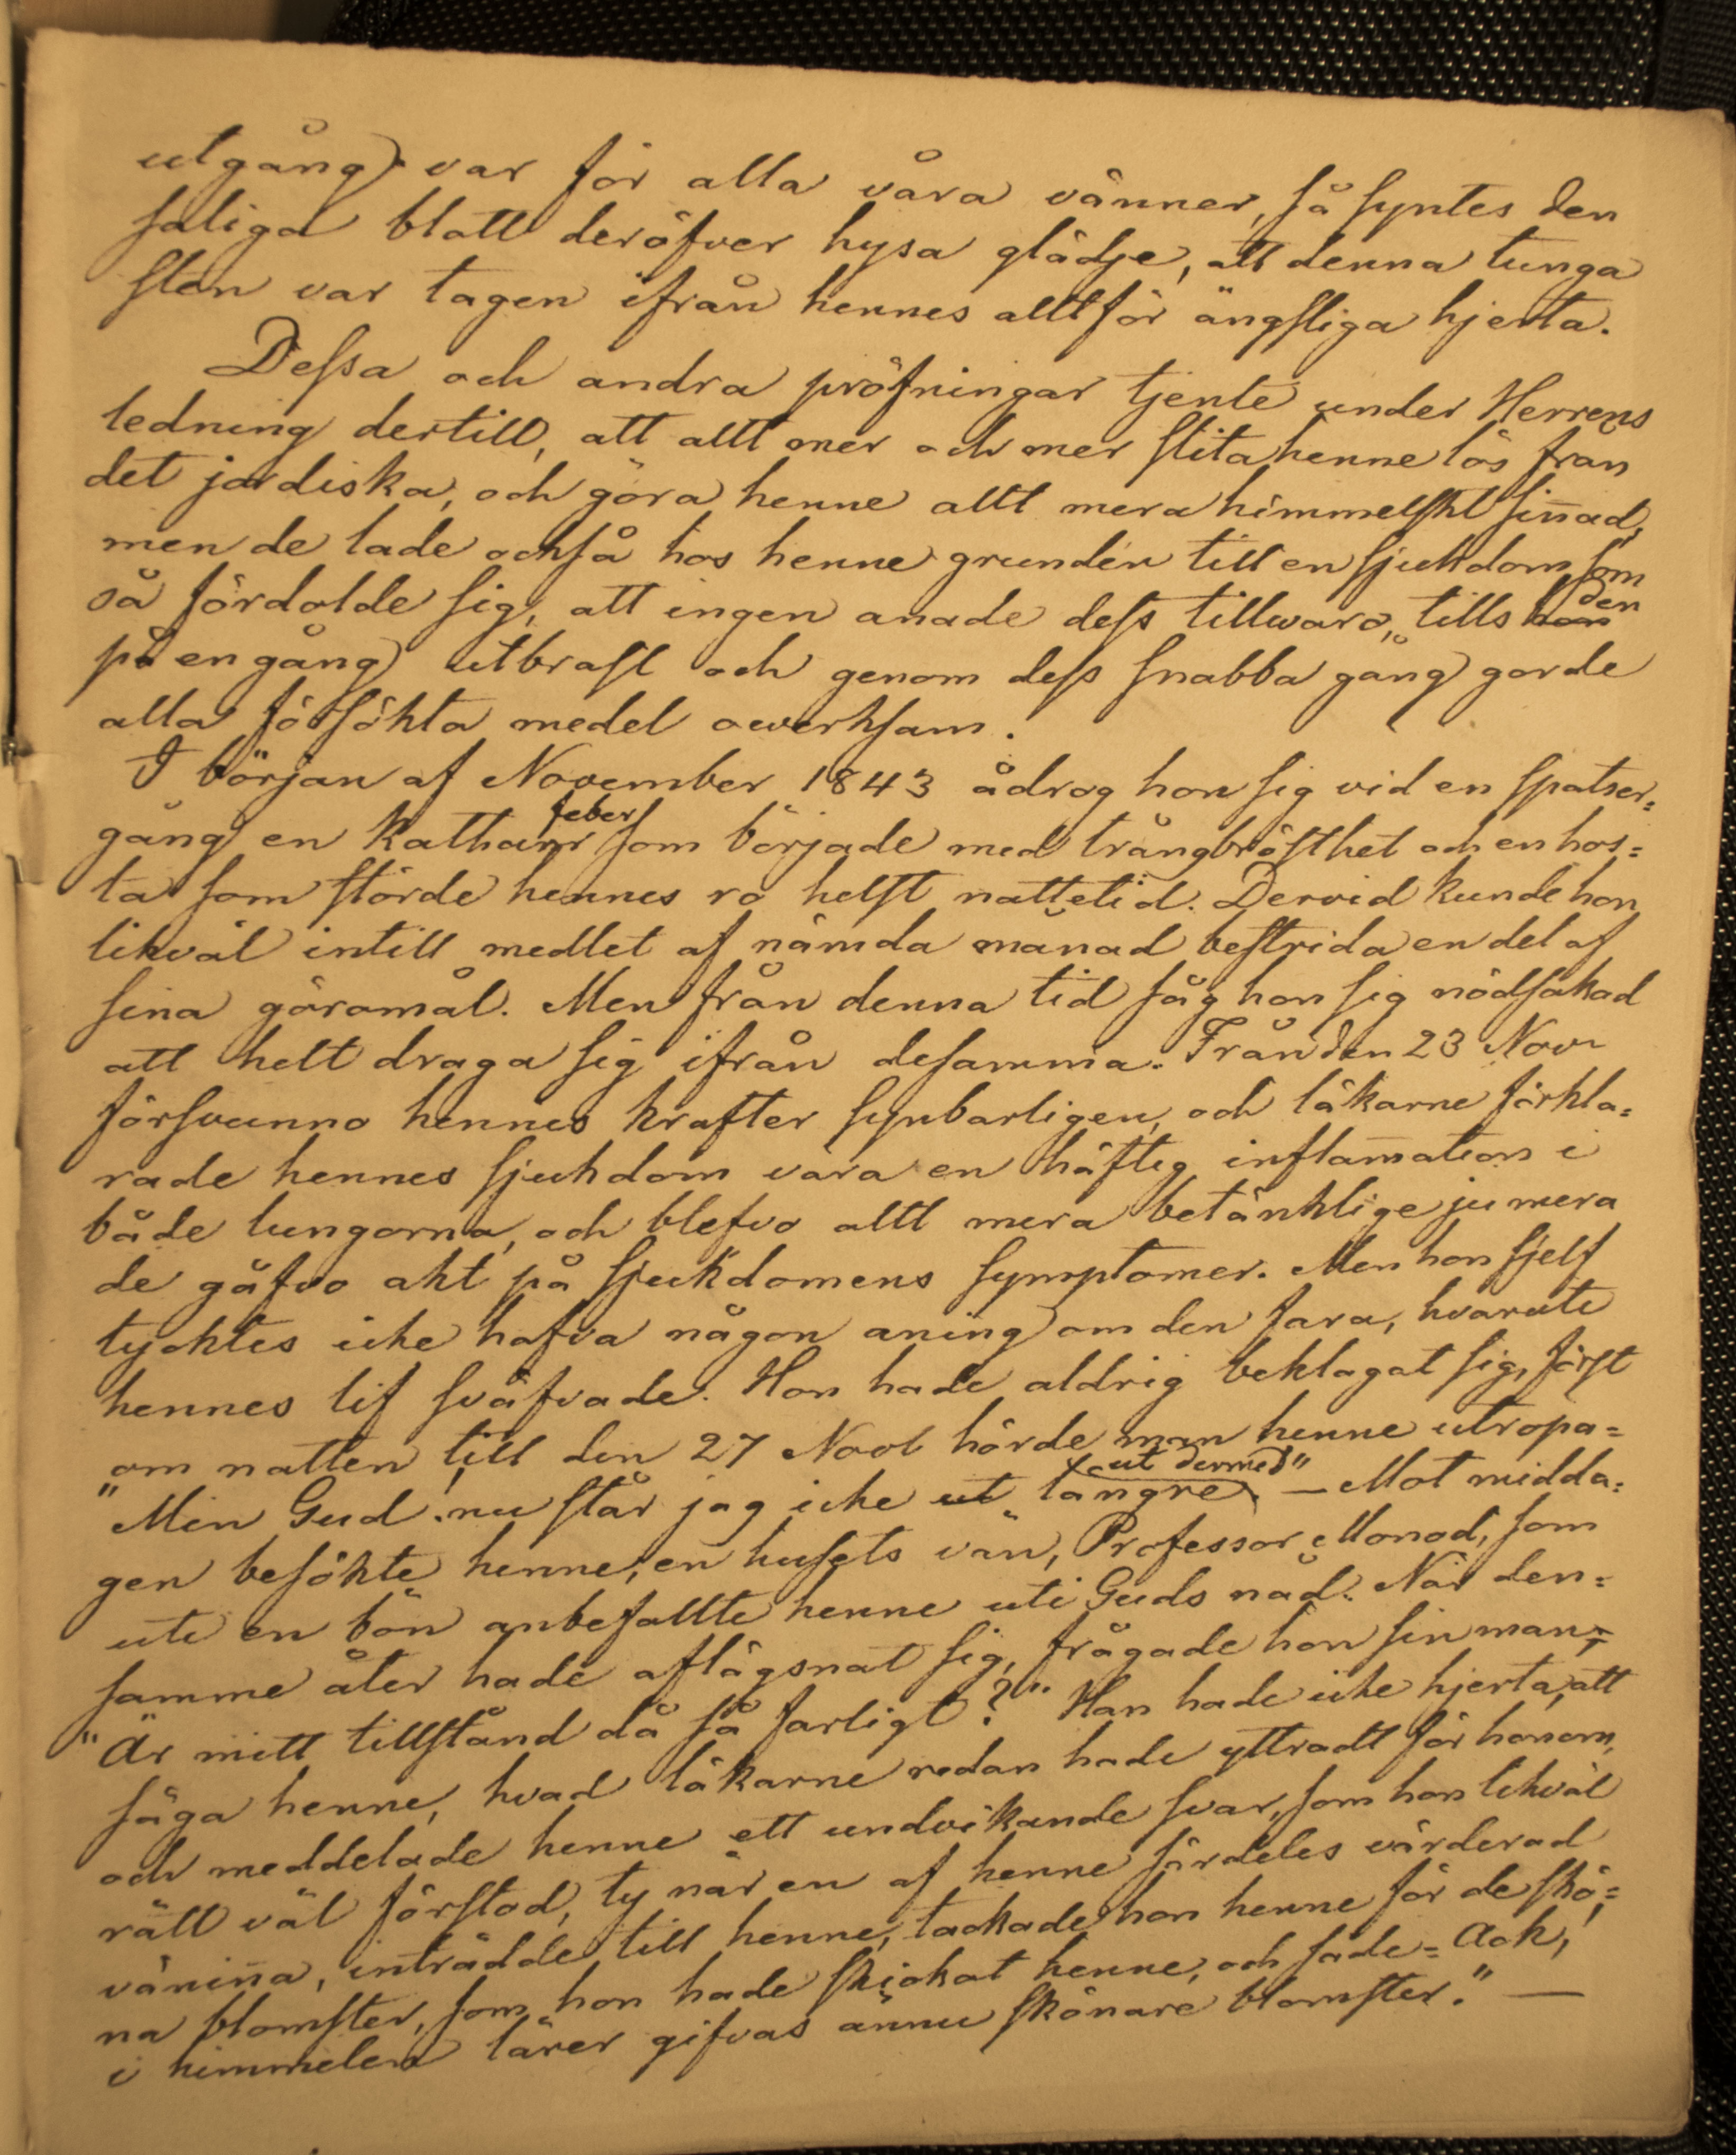 utgång) var för alla våra vänner, så syntes den
saliga blott deröfver hysa glädje, att denna tunga
sten var tagen ifrån hennes alltför ängsliga hjerta.
Dessa och andra pröfningar tjente under Herrens
ledning dertill, att allt mer och mer slita henne lös från
det jordiska, och göra henne allt mera himmelskt sin̄ad,
men de lade också hos henne grunden till en sjukdom som
så fördolde sig, att ingen anade dess tillwaro, tills hon den
på en gång utbrast och genom dess snabba gång gorde
alla försökta medel overksam.
I början af November 1843 ådrog hon sig vid en spatser=
gång en Katharr feber som började med trångbrösthet och en hos=
ta som störde hennes ro helst nattetid. Dervid kunde hon
likväl intill medlet af nämda månad bestrida en del af
sina göromål. Men från denna tid såg hon sig nödsakad
att helt draga sig ifrån desamma. Från den 23 Nov
försvunno hennes krafter synbarligen, och läkarne förkla=
rade hennes sjukdom vara en häftig inflam̄ation i
både lungorna, och blefvo allt mera betänklige ju mera
de gåfvo akt på sjukdomens symptomer. Men hon sjelf
tycktes icke hafva någon aning om den fara, hvaruti
hennes lif sväfvade. Hon hade aldrig beklagat sig, först
om natten till den 27 Nov hörde man henne utropa=
"Min Gud! nu står jag icke ut längre ut dermed" — Mot midda=
gen besökte henne, en husets vän, Professor Monod, som
uti en bön anbefallte henne uti Guds nåd. När den=
samme åter hade aflägsnat sig, frågade hon sin man,
"Är mitt tillstånd då så farligt?" Han hade icke hjerta, att
säga henne, hvad läkarne redan hade yttradt för honom,
och meddelade henne ett undvikande svar, som hon likväl
rätt väl förstod, ty när en af henne särdeles värderad
vänin̄a, inträdde till henne, tackade hon henne för de skö=
na blomster, som hon hade skickat henne, och sade= Ack,
i himmelen lärer gifvas ännu skönare blomster." —